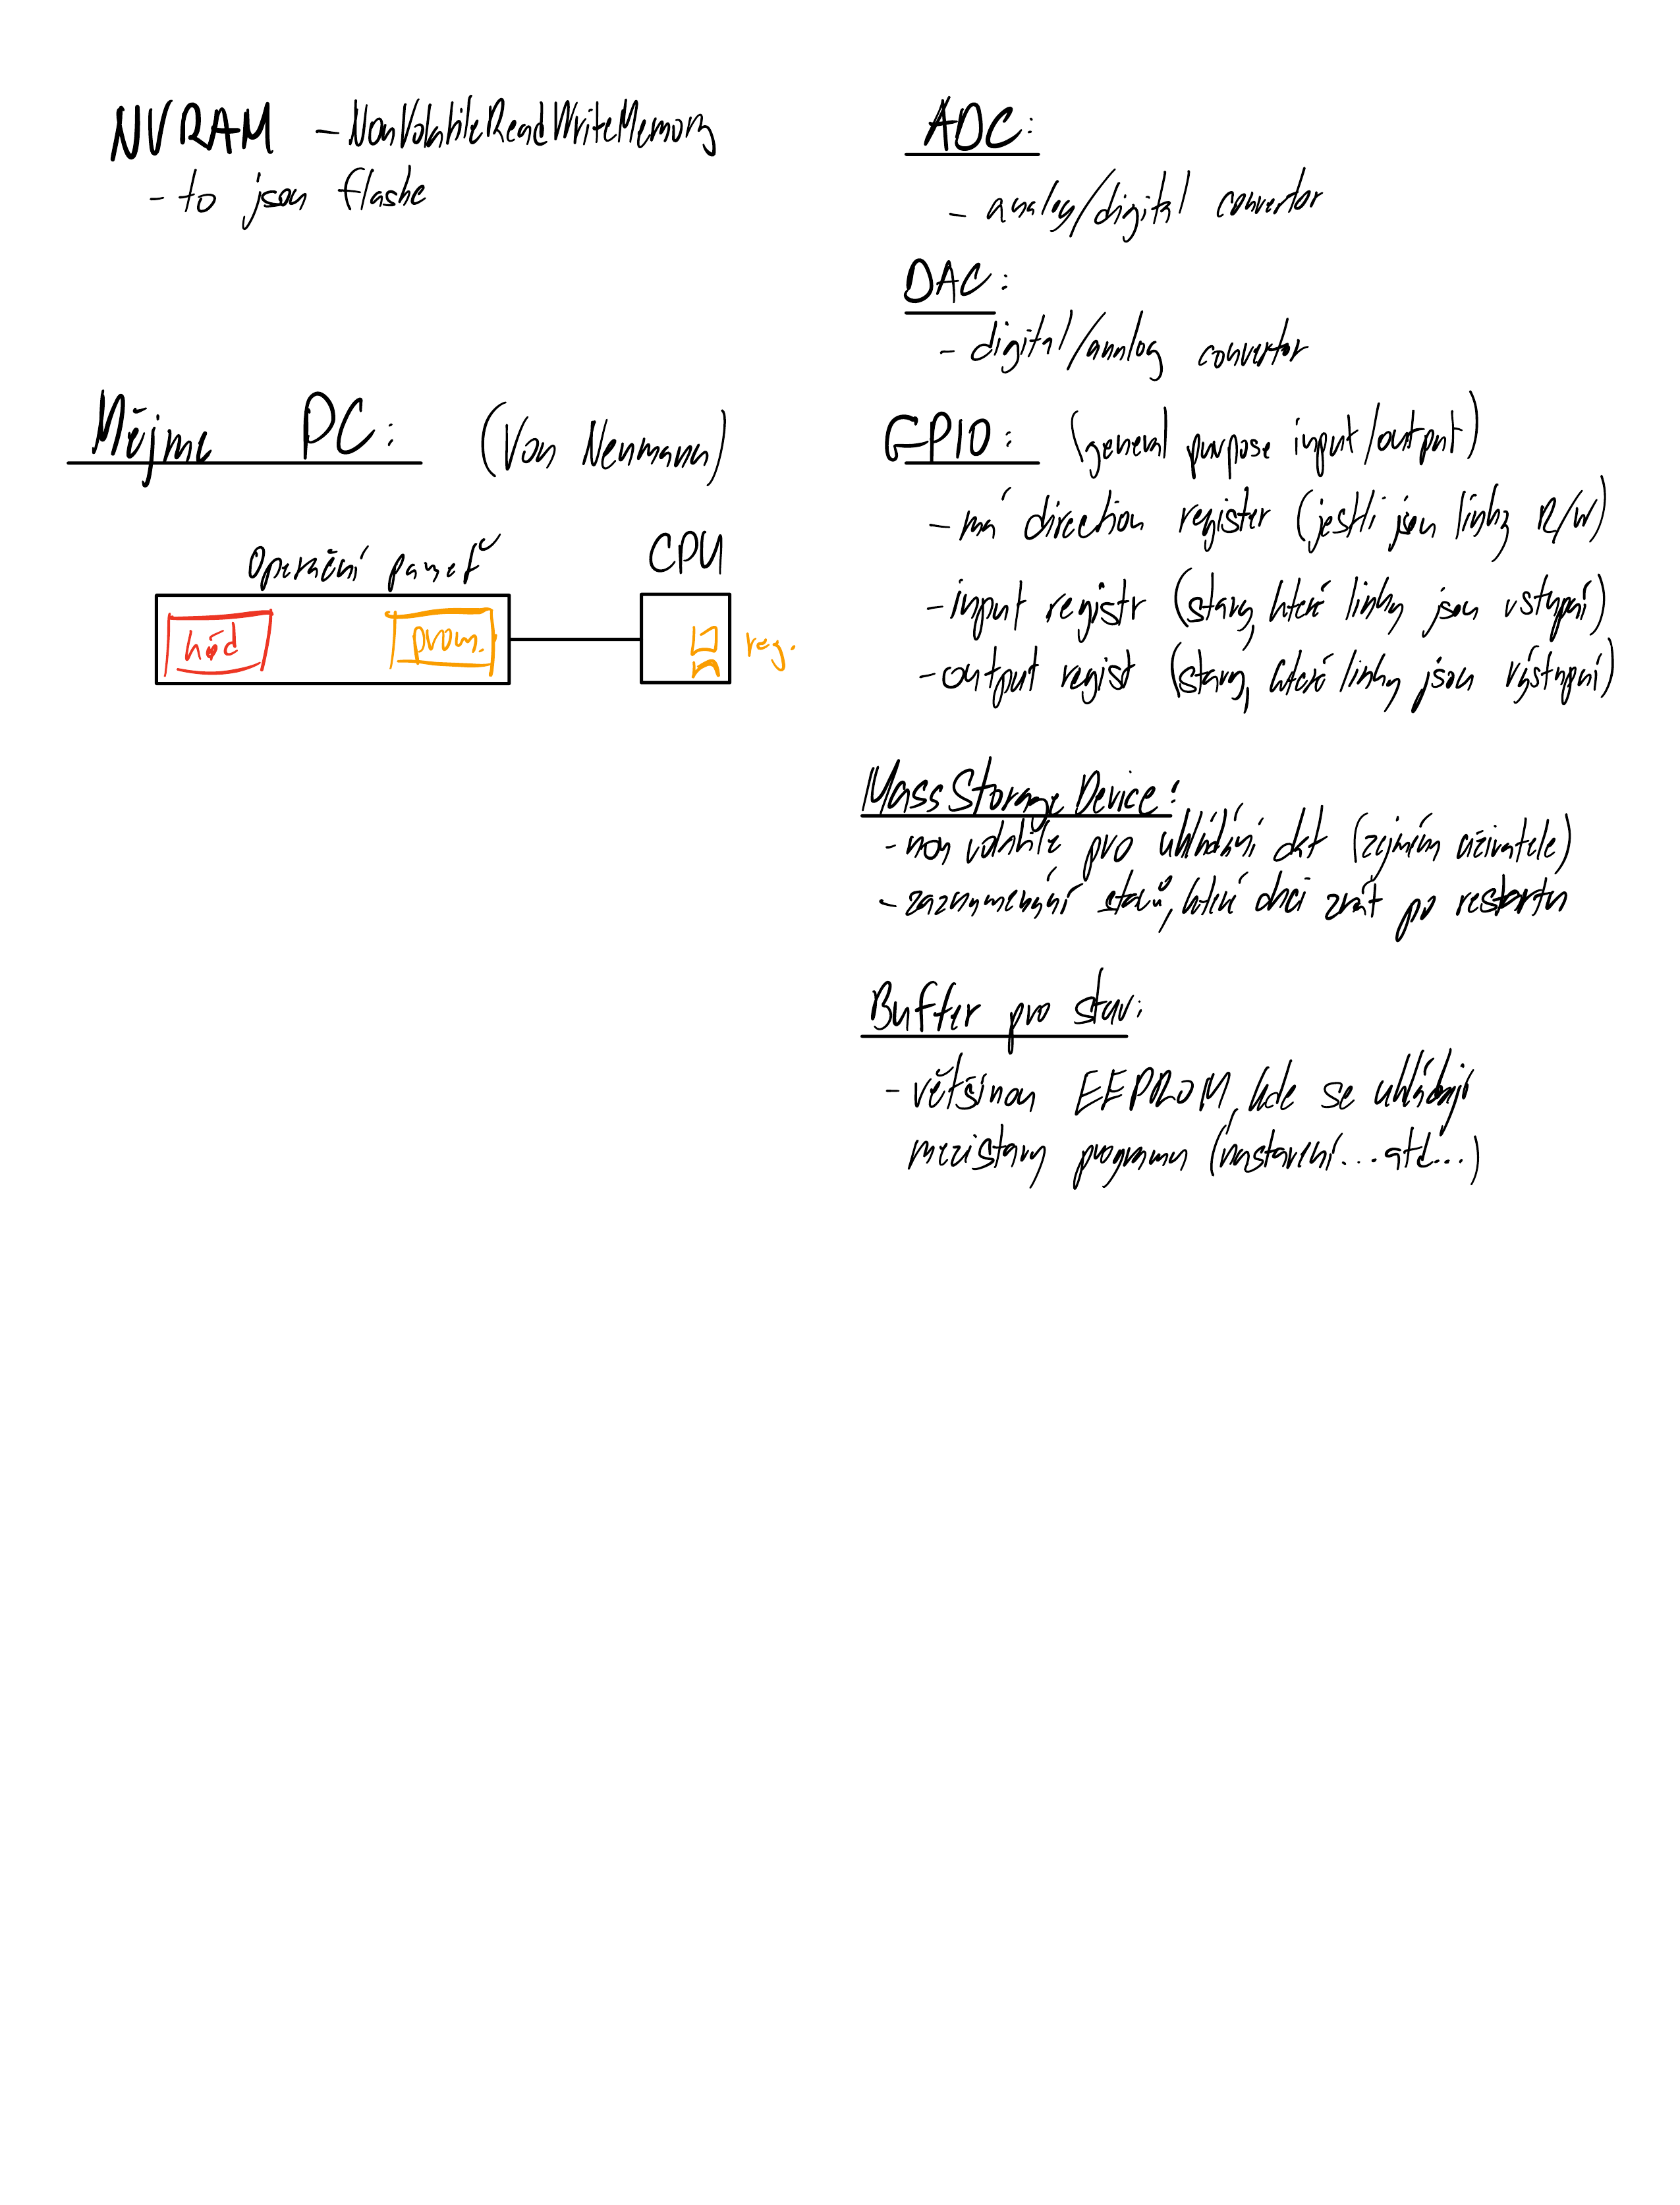 NVRAM - NonVolatileReadWriteMemory
- to jsou flashe
Mějme PC: (Von Neumann)
Operační paměť
CPU
kód
prom.
reg.
ADC:
- analog/digital convertor
DAC:
- digital/analog convertor
GPIO: (general purpose input/output)
- má direction register (jestli jsou linky R/W)
- input registr (stavy, které linky jsou vstupní)
- output regist (stavy, které linky jsou výstupní)
Mass Storage Device:
- non volatile pro ukládání dat (zejmém uživatele)
- zaznamenání stavů, které chci znát po restartu
Buffer pro stav:
- většinou EEPROM, kde se ukládají
mezistavy programu (nastavení...atd...)